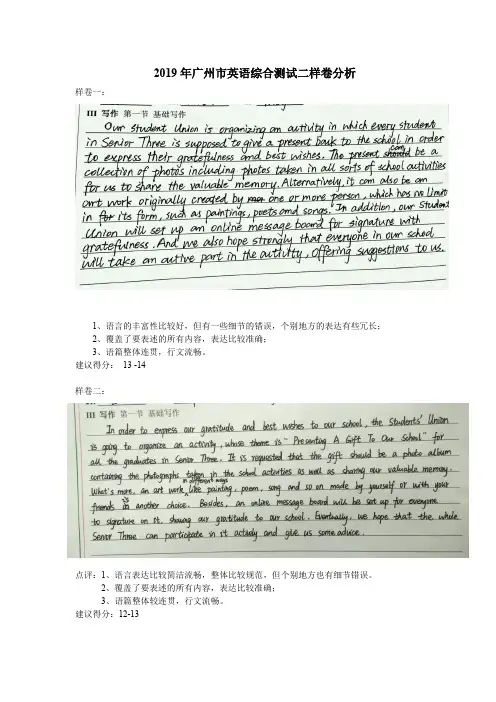 2019年广州市英语综合测试二样卷分析
样卷一:
III 写作 第一节 基础写作
Our Student Union is organizing an activity in which every student
in Senior Three is supposed to give a present back to the school in order
to express their gratefulness and best wishes. The present can be a
collection of photos including photos taken in all sorts of school activities
for us to share the valuable memory. Alternatively, it can also be an
art work originally created by one or more person, which has no limit
in its form, such as paintings, poets and songs. In addition, our Student
Union will set up an online message board for signature with
gratefulness. And we also hope strongly that everyone in our school
will take an active part in the activity, offering suggestions to us.
1、语言的丰富性比较好,但有一些细节的错误,个别地方的表达有些冗长;
2、覆盖了要表述的所有内容,表达比较准确;
3、语篇整体连贯,行文流畅。
建议得分: 13 -14
样卷二:
III 写作 第一节 基础写作
In order to express our gratitude and best wishes to our school, the Students' Union
is going to organize an activity, whose theme is "Presenting A Gift To Our School" for
all the graduates in Senior Three. It is requested that the gift should be a photo album
containing the photographs taken in the school activities as well as sharing our valuable memory.
What's more, an art work in different ways like painting, poem, song and so on made by yourself or with your
friends is another choice. Besides, an online message board will be set up for everyone
to signature on it, showing our gratitude to our school. Eventually, we hope that the whole
Senior Three can participate in it actively and give us some advice.
点评:1、语言表达比较简洁流畅,整体比较规范,但个别地方也有细节错误。
2、覆盖了要表述的所有内容,表达比较准确;
3、语篇整体较连贯,行文流畅。
建议得分:12-13